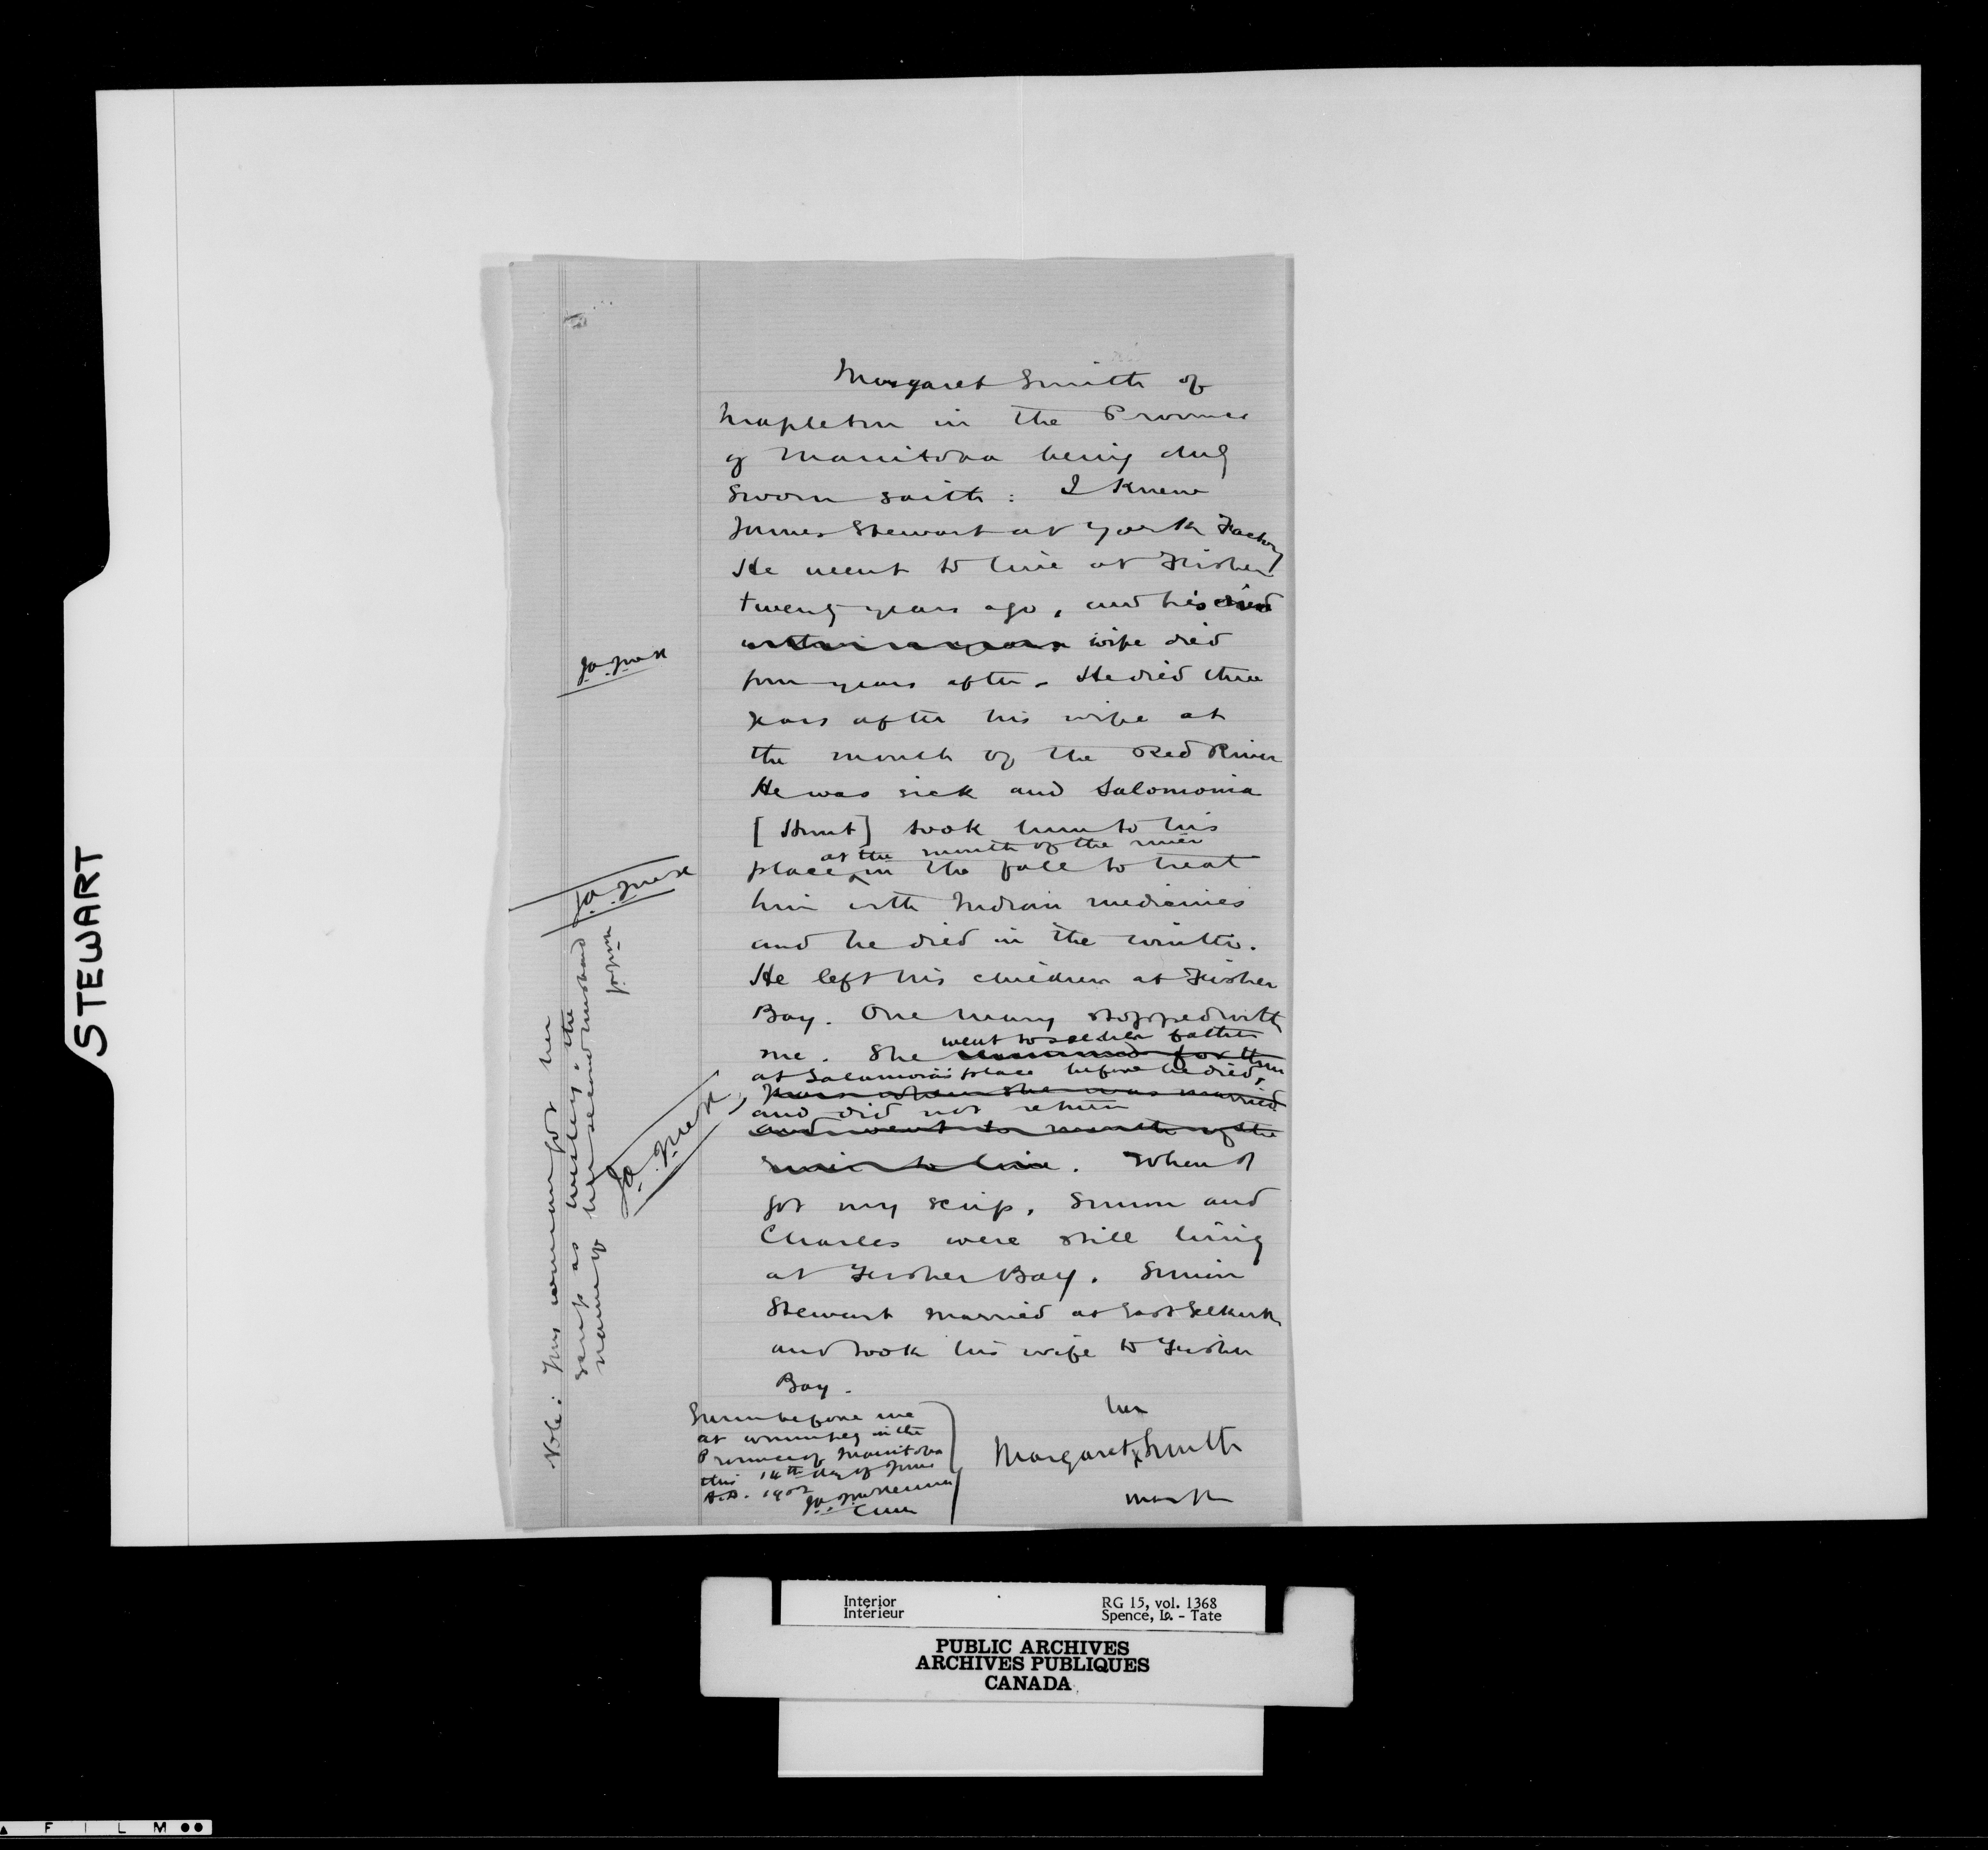 STEWART
Margaret Smith of
Mapleton in the Province
of Manitoba being duly
sworn saith: I knew
James Stewart at York Factory
He went to live at Fisher
twenty years ago, and his died
within a year wife died
four years after. He died three
years after his wife at
the mouth of the Red River
He was sick and Salomonia
[Hunt] took him to his
at the mouth of the river
place in the fall to treat
him with Indian medicines
and he died in the winter.
He left his children at Fisher
Bay. One Mary stopped with
went to see her father
me. She remained for three
at Salamonia's place before he died,
years when she was married
and did not return
and went to mouth of the
river to live. When I
got my scrip, Simon and
Charles were still living
at Fisher Bay. Simon
Stewart married at East Selkirk
and took his wife to Fisher
Bay.
Sworn before me
at Winnipeg in the
Province of Manitoba
this 14th day of June
A.D. 1902
J.A.J. McKenna
Comr
her
Margaret x Smith
mark
J.A.J. McK
J.A.J. McK
J.A.J. McK
Note: This woman got her
scrip as the
name of her second husband
J.A.J. McK
Interior
Intérieur
RG 15, vol. 1368
Spence, Is. - Tate
PUBLIC ARCHIVES
ARCHIVES PUBLIQUES
CANADA
FILM